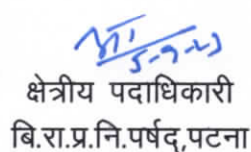 5-9-23
क्षेत्रीय पदाधिकारी
बि.रा.प्र.नि.पर्षद्,पटना